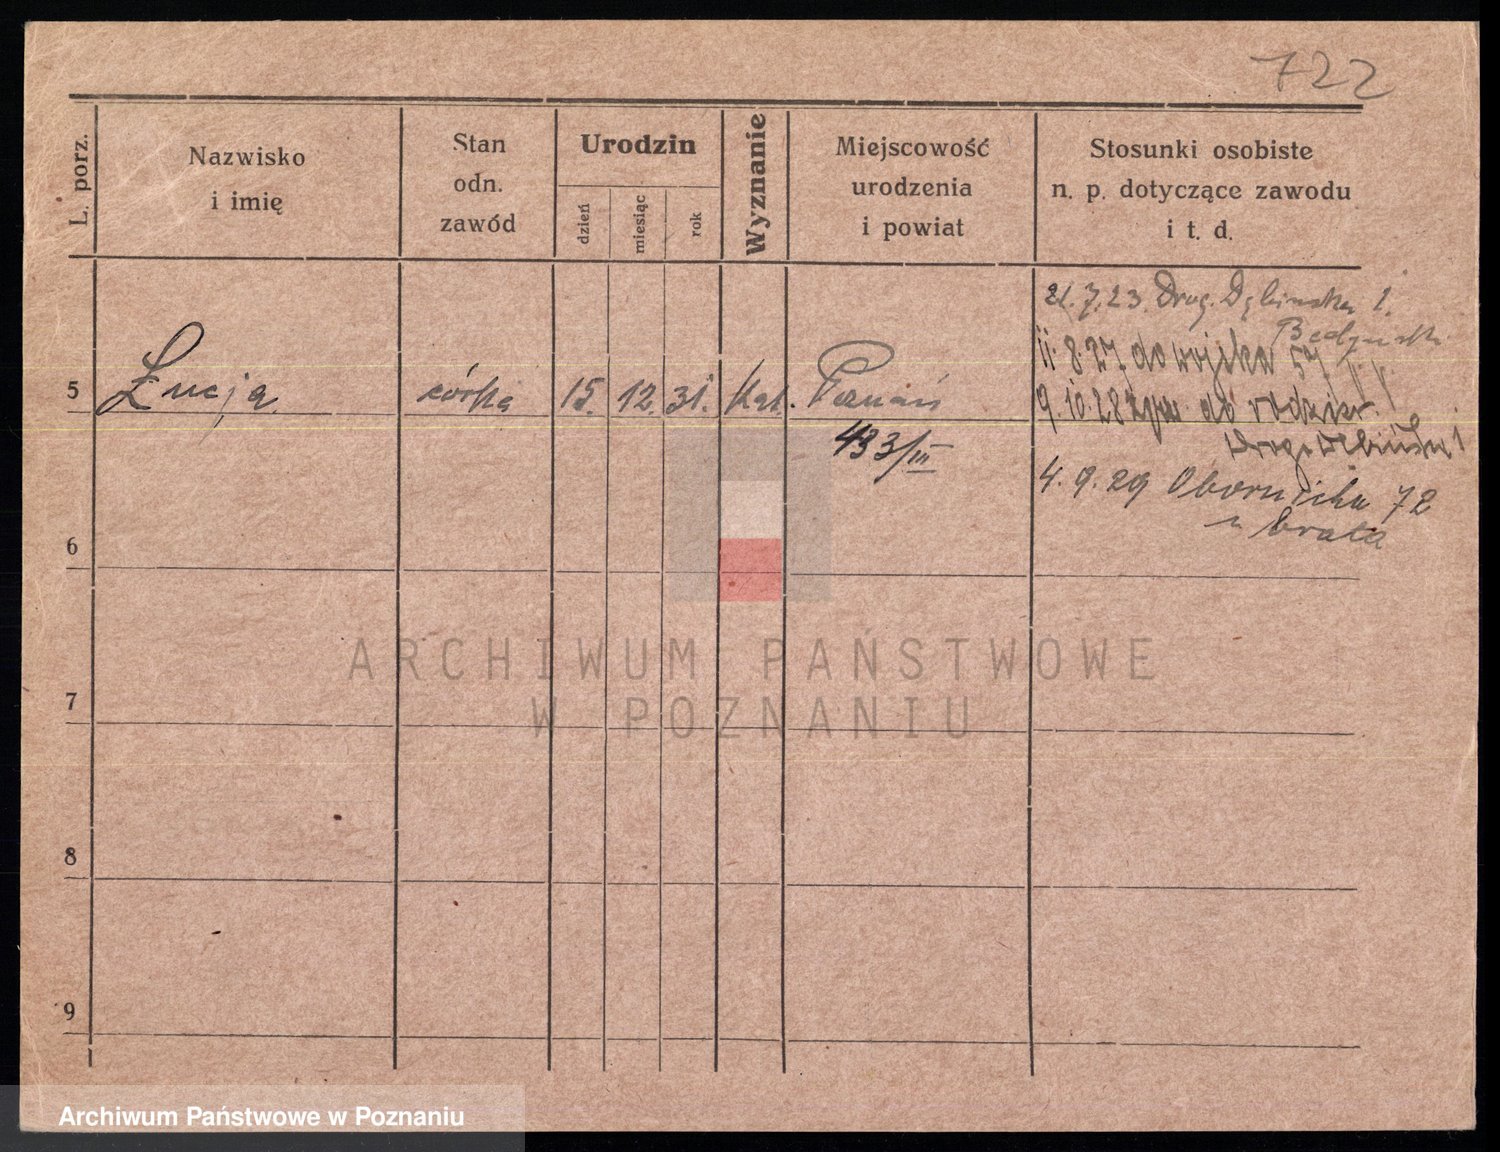 722
L. porz.
Nazwisko
i imię
Stan
odn.
zawód
Urodzin
dzień
miesiąc
rok
Wyznanie
Miejscowość
urodzenia
i powiat
Stosunki osobiste
n. p. dotyczące zawodu
i t. d.
21.7.23. Drog. Dębińska 1.
11.8.27 do wojska 57
5 Łucja córka 15. 12. 31. Kat. Poznań
9.10.28 do rodzic.
433/III
4.9.29 Obornicka 72
u brata
6
7
8
9
ARCHIWUM PAŃSTWOWE
W POZNANIU
Archiwum Państwowe w Poznaniu